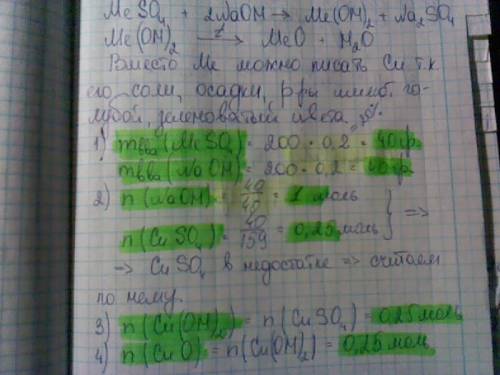 MeSO₄ + 2NaOH → Me(OH)₂ + Na₂SO₄
Me(OH)₂ →t MeO + H₂O
Вместо Ме можно писать Cu, т.к.
его соли, осадки, р-ры имеют го-
лубой, зеленоватый цвета.
1) mв-ва (MeSO₄) = 200 · 0,2 = 40 гр.
mв-ва (NaOH) = 200 · 0,2 = 40 гр.
2) n (NaOH) = 40/40 = 1 моль
n (CuSO₄) = 40/159 = 0,25 моль } =>
=> CuSO₄ в недостатке => считаем
по нему.
3) n (Cu(OH)₂) = n (CuSO₄) = 0,25 моль
4) n (CuO) = n (Cu(OH)₂) = 0,25 моль